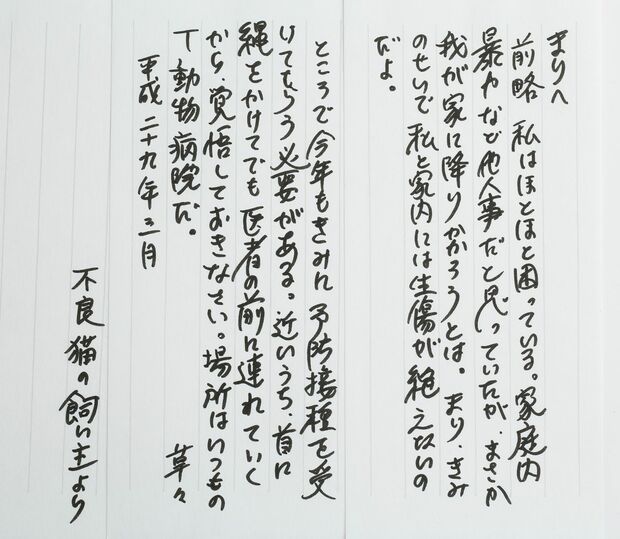 まりへ
前略 私はほとほと困っている。家庭内
暴力など他人事だと思っていたが、まさか
我が家に降りかかろうとは。まり、きみ
のせいで私と家内には生傷が絶えないの
だよ。
ところで今年もきみに予防接種を受
けてもらう必要がある。近いうち、首に
縄をかけてでも医者の前に連れていく
から、覚悟しておきなさい。場所はいつもの
T動物病院だ。
草々
平成二十九年三月
不良猫の飼い主より